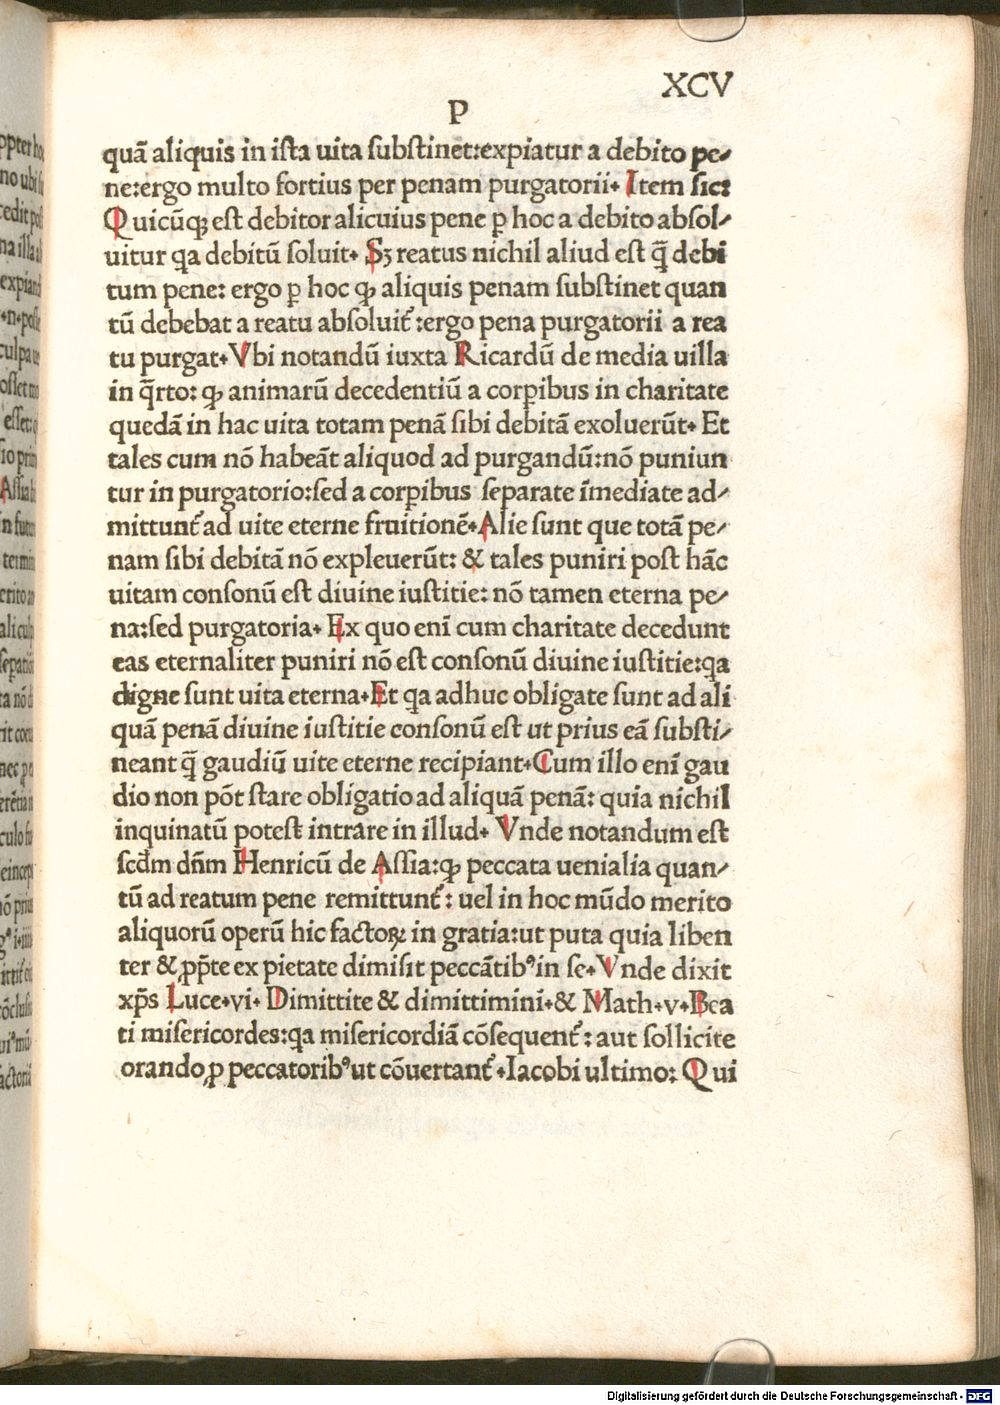 XCV
P
quā aliquis in iſta uita ſubſtinet:expiatur a debito pe⸗
ne:ergo multo fortius per penam purgatorii. Item ſic:
Quicūqꝫ eſt debitor alicuius pene ꝑ hoc a debito abſol⸗
uitur qa debitū ſoluit. Sꝫ reatus nichil aliud eſt q̄ debi
tum pene: ergo ꝑ hoc ꝙ aliquis penam ſubſtinet quan
tū debebat a reatu abſoluit᷑:ergo pena purgatorii a rea
tu purgat. Vbi notandū iuxta Ricardū de media uilla
in q̄rto: ꝙ animarū decedentiū a corꝑibus in charitate
quedā in hac uita totam penā ſibi debitā exoluerūt. Et
tales cum nō habeāt aliquod ad purgandū:nō puniun
tur in purgatorio:ſed a corꝑibus ſeparate īmediate ad⸗
mittunt᷑ ad uite eterne fruitionē. Alie ſunt que totā pe⸗
nam ſibi debitā nō expleuerūt: & tales puniri poſt hāc
uitam conſonū eſt diuine iuſtitie: nō tamen eterna pe⸗
na:ſed purgatoria. Ex quo enī cum charitate decedunt
eas eternaliter puniri nō eſt conſonū diuine iuſtitie:qa
digne ſunt uita eterna. Et qa adhuc obligate ſunt ad ali
quā penā diuine iuſtitie conſonū eſt ut prius eā ſubſti⸗
neant q̄ gaudiū uite eterne recipiant. Cum illo enī gau
dio non pōt ſtare obligatio ad aliquā penā: quia nichil
inquinatū poteſt intrare in illud. Vnde notandum eſt
ſcd̄m dn̄m Henricū de Aſſia:ꝙ peccata uenialia quan⸗
tū ad reatum pene remittunt᷑: uel in hoc mūdo merito
aliquorū operū hic factoꝝ in gratia:ut puta quia liben
ter & ꝓp̄te ex pietate dimiſit peccātibꝰ in ſe. Vnde dixit
xp̄s Luce.vi. Dimittite & dimittimini.& Math.v.Bea
ti miſericordes:qa miſericordiā cōſequent᷑: aut ſollicite
orando ꝓ peccatoribꝰ ut cōuertant᷑.Iacobi ultimo: Qui
Digitalisierung gefördert durch die Deutsche Forschungsgemeinschaft - DFG